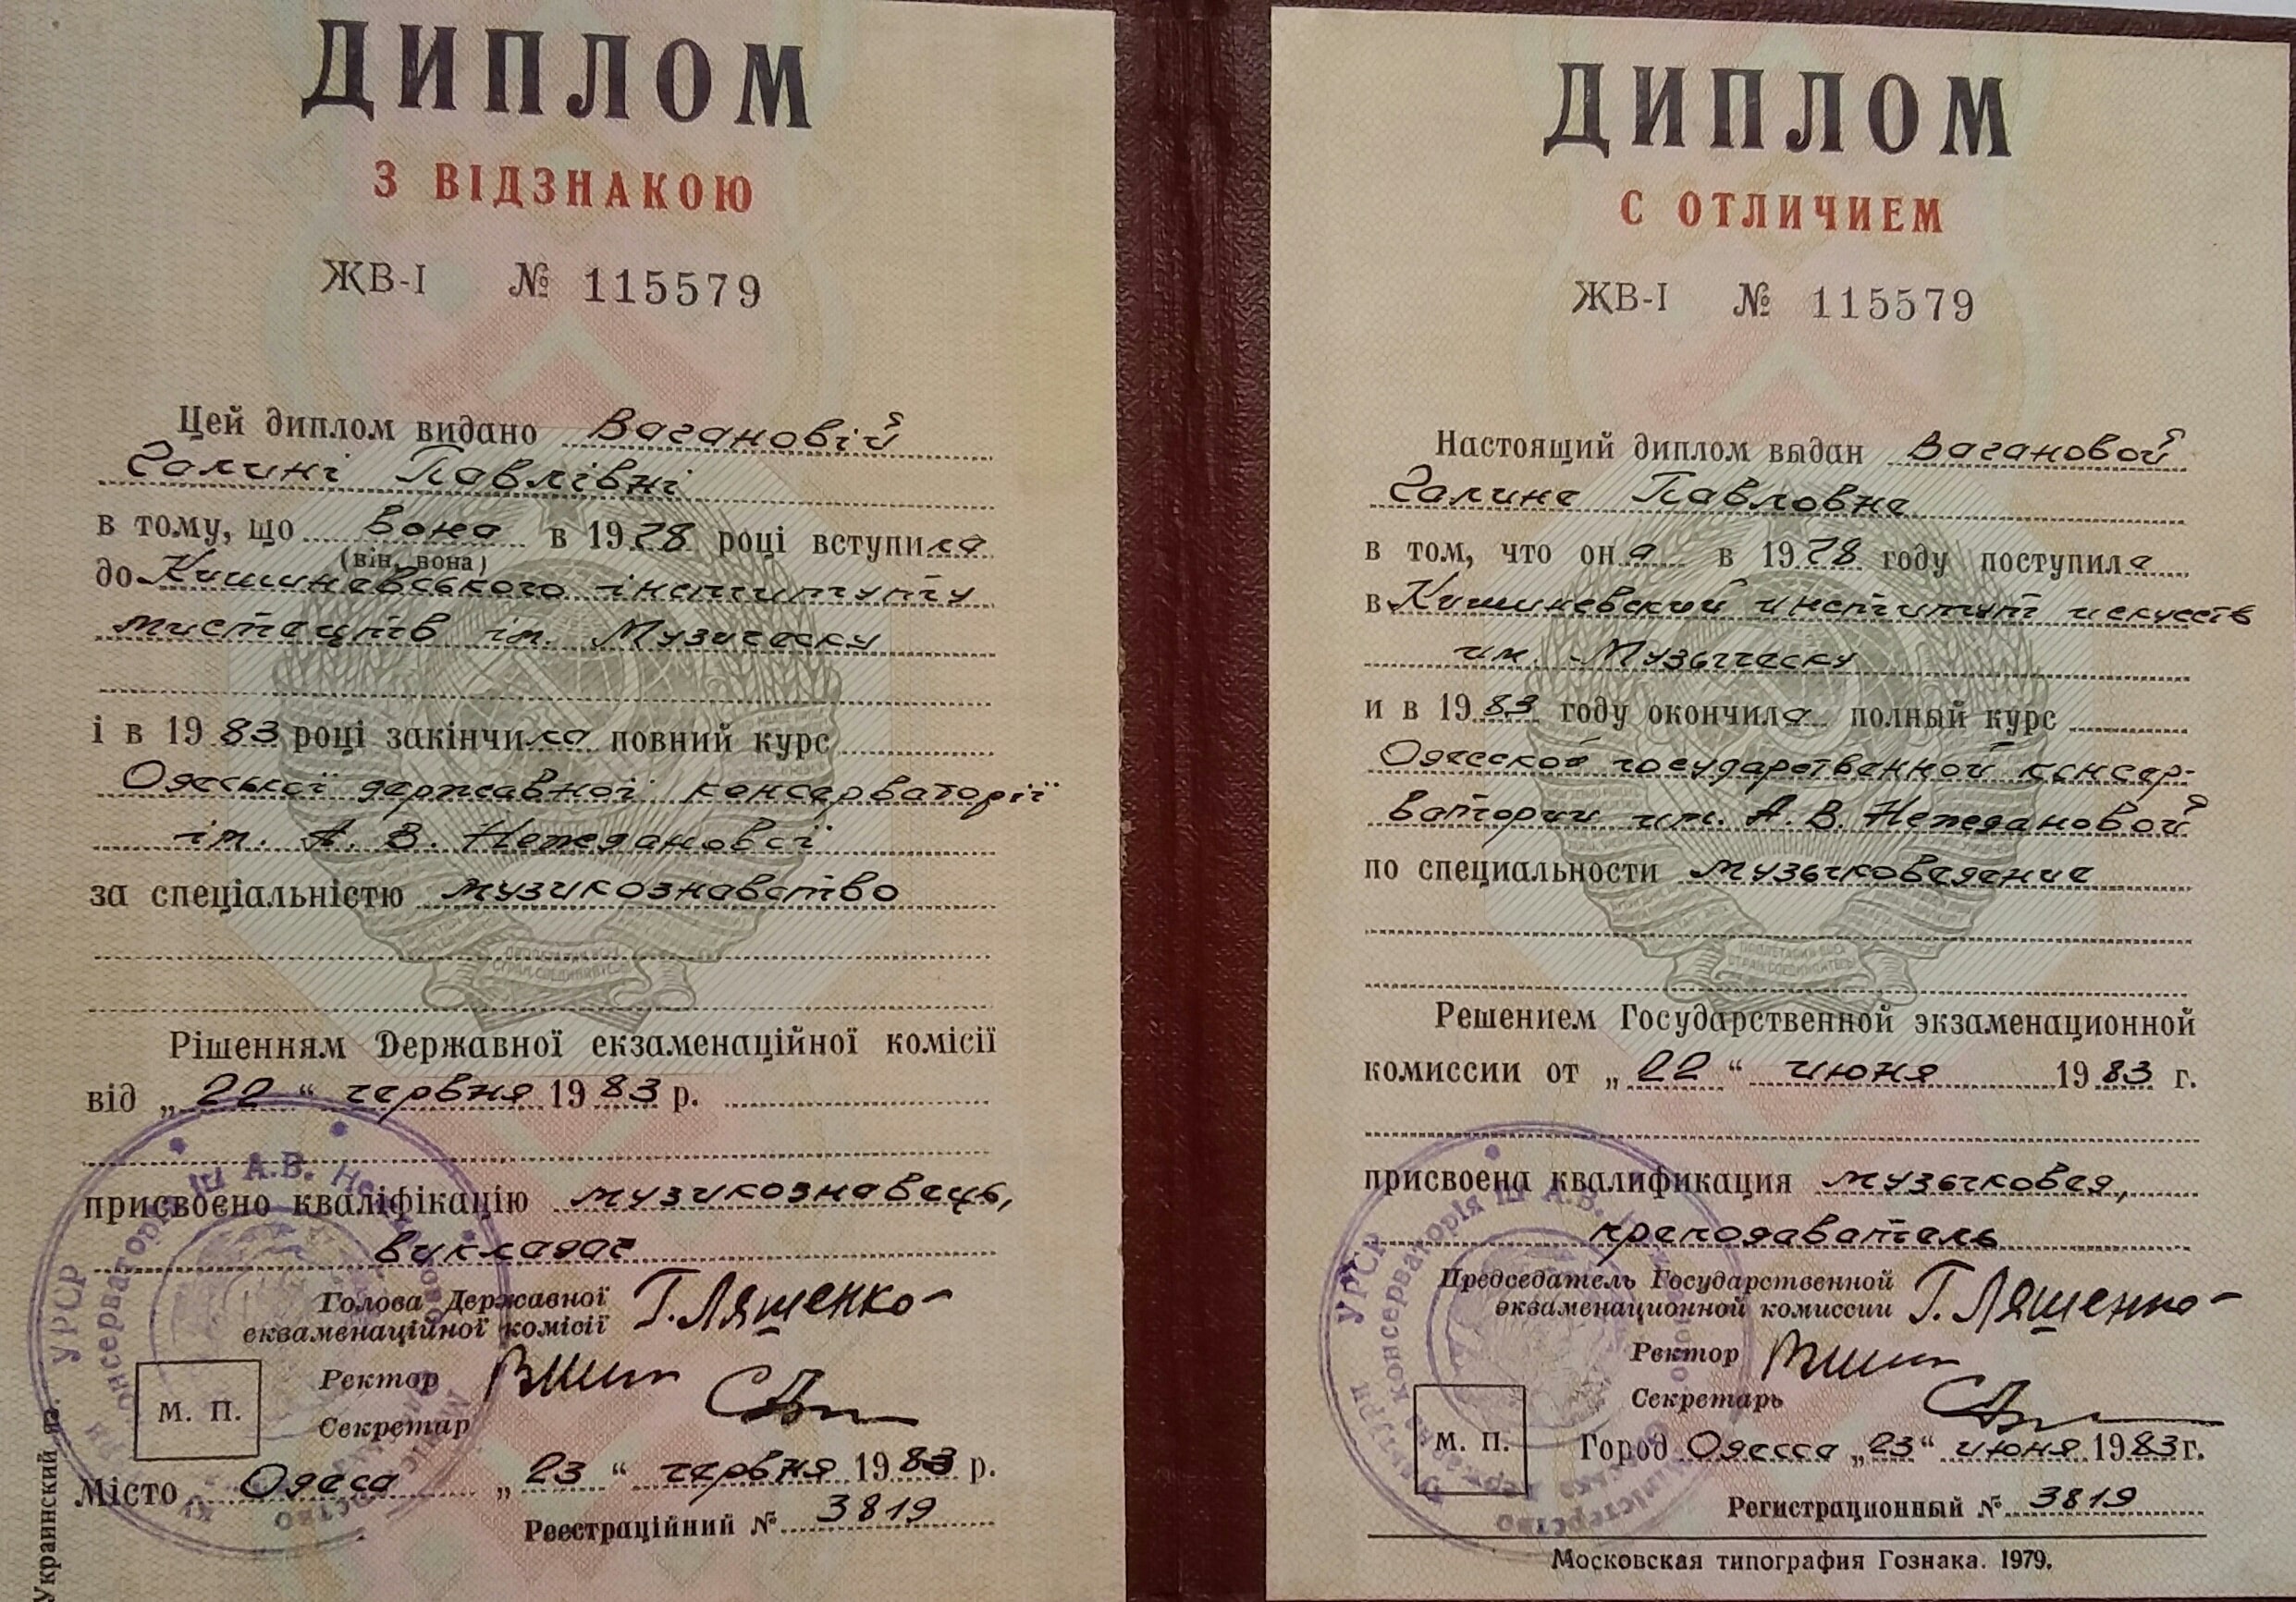 ДИПЛОМ
З ВІДЗНАКОЮ
ЖВ-І № 115579
Цей диплом видано Вагановій
Галині Павлівні
в тому, що вона в 1978 році вступила
(він, вона)
до Кишиневського інституту
мистецтв ім. Музическу
і в 1983 році закінчила повний курс
Одеської державної консерваторії
ім. А. В. Нежданової
за спеціальністю музикознавство
Рішенням Державної екзаменаційної комісії
від „22“ червня 1983 р.
присвоєно кваліфікацію музикознавець,
викладач
Голова Державної
екзаменаційної комісії Г. Ляшенко
Ректор
Секретар
М. П.
Місто Одеса „23“ червня 1983 р.
Реєстраційний № 3819
Украинский яз.
ДИПЛОМ
С ОТЛИЧИЕМ
ЖВ-І № 115579
Настоящий диплом выдан Вагановой
Галине Павловне
в том, что она в 1978 году поступила
в Кишиневский институт искусств
им. Музыческу
и в 1983 году окончила полный курс
Одесской государственной консер-
ватории им. А. В. Неждановой
по специальности музыковедение
Решением Государственной экзаменационной
комиссии от „22“ июня 1983 г.
присвоена квалификация музыковед,
преподаватель
Председатель Государственной
экзаменационной комиссии Г. Ляшенко
Ректор
Секретарь
М. П.
Город Одесса „23“ июня 1983 г.
Регистрационный № 3819
Московская типография Гознака. 1979.